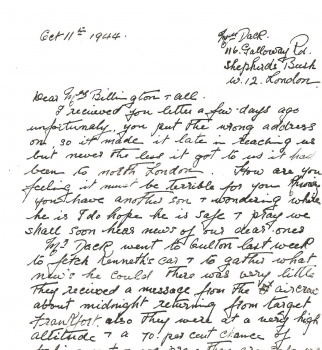 Oct 11th 1944.
Mrs Dack.
116. Galloway Rd.
Shepherds Bush
W. 12. London
Dear Mrs Billington & all.
I recieved you letter a few days ago
unfortunaly you put the wrong address
on, so it made it late in reaching us
but never the less it got to us it had
been to north London. How are you
feeling it must be terrible for you knowing
you have another son & wondering where
he is I do hope he is safe & pray we
shall soon hear news of our dear ones
Mr Dack went to Oulton last week
to fetch Kenneth's car & to gather what
new's he could there was very little
They recived a message from the aircrew
about midnight returning from target
Frankfort. also they were at a very high
altitude & a 70. per cent chance of